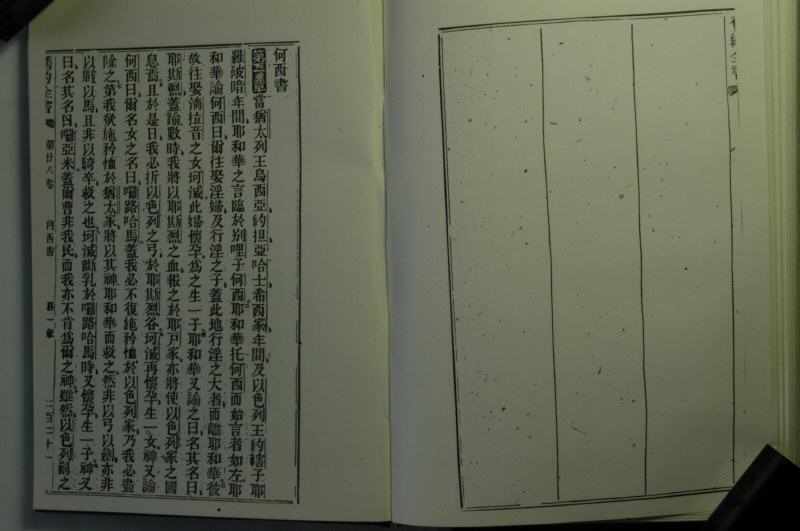 何西書
第一章當猶太列王烏西亞約担亞哈士希西家年間及以色列王約轄子耶
羅破暗年間耶和華之言臨於别哩子何西耶和華托何西而始言者如左耶
和華諭何西曰爾往娶淫婦及行淫之子蓋此地行淫之大者而離耶和華彼
故往娶滴拉音之女坷滅此婦懷孕爲之生一子耶和華又諭之曰名其名曰
耶斯烈蓋諭數時我將以耶斯烈之血報之於耶戸家亦將使以色列家之國
息焉且於是日我必折以色列之弓於耶斯烈谷坷滅再懷孕生一女神又諭
何西曰爾名女之名曰囉路哈馬蓋我必不復施矜恤於以色列家乃我必盡
除之第我欲施矜恤於猶太家將以其神耶和華而救之然非以弓以劍亦非
以戰以馬且非以騎卒救之也坷滅斷乳於囉路哈馬時又懷孕生一子神又
曰名其名曰囉亞米蓋爾曹非我民而我亦不肯爲爾之神雖然以色列嗣之
舊約全書 第廿八卷 何西書 第一章 二百二十一